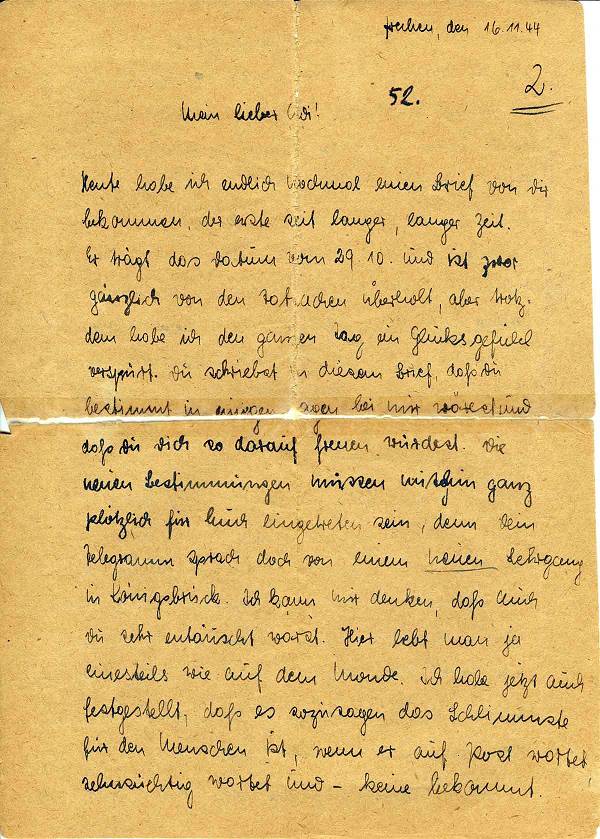 Frechen, den 16.11.44
52.
2.
Mein lieber Adi!
Heute habe ich endlich nochmal einen Brief von dir
bekommen, der erste seit langer, langer Zeit.
Er trägt das Datum vom 29.10. und ist zwar
gänzlich von den Tatsachen überholt, aber trotz-
dem habe ich den ganzen Tag ein Glücksgefühl
verspürt. Du schriebst in diesem Brief, daß du
bestimmt in einigen Tagen bei mir wärest und
daß du dich so darauf freuen würdest. Die
neuen Bestimmungen müssen mithin ganz
plötzlich für Euch eingetreten sein, denn dein
Telegramm sprach doch von einem neuen Lehrgang
in Königsbrück. Ich kann mir denken, daß auch
du sehr entäuscht warst. Hier lebt man ja
einesteils wie auf dem Monde. Ich habe jetzt auch
festgestellt, daß es sozusagen das Schlimmste
für den Menschen ist, wenn er auf Post wartet,
sehnsüchtig wartet und - keine bekommt.